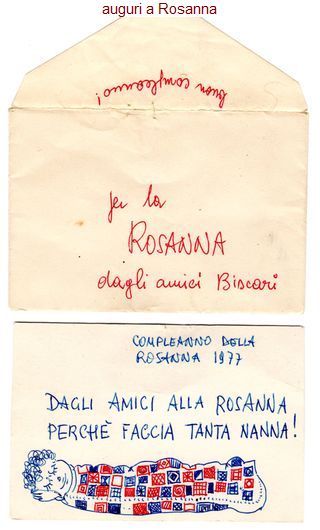 auguri a Rosanna
buon compleanno!
per la
ROSANNA
dagli amici Biscari
COMPLEANNO DELLA
ROSANNA 1977
DAGLI AMICI ALLA ROSANNA
PERCHÈ FACCIA TANTA NANNA!